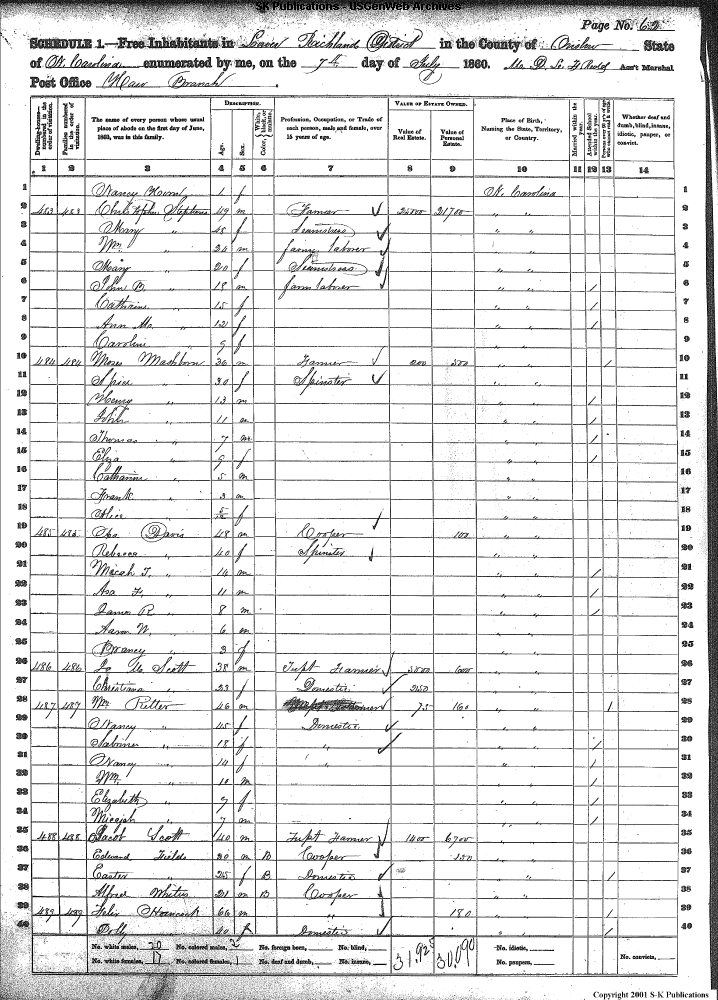 SK Publications - USGenWeb Archives
Page No. 62
SCHEDULE 1.—Free Inhabitants in Lower Richland District in the County of Onslow State
of N. Carolina enumerated by me, on the 7th day of July 1860. Ass't Marshal
Post Office Haw Branch.
Dwelling-houses—numbered in the order of visitation.
Families numbered in the order of visitation.
The name of every person whose usual place of abode on the first day of June, 1860, was in this family.
DESCRIPTION.
Age.
Sex.
Color, White, black, or mulatto.
Profession, Occupation, or Trade of each person, male and female, over 15 years of age.
VALUE OF ESTATE OWNED.
Value of Real Estate.
Value of Personal Estate.
Place of Birth, Naming the State, Territory, or Country.
Married within the year.
Attended School within the year.
Persons over 20 y'rs of age who cannot read & write.
Whether deaf and dumb, blind, insane, idiotic, pauper, or convict.
1 2 3 4 5 6 7 8 9 10 11 12 13 14
1 Nancy 1 f N. Carolina 1
2 483 483 Stephens 49 m Farmer 25000 21700 " " 2
3 Mary " 48 f Seamstress " " 3
4 Wm. " 24 m farm laborer " " 4
5 Mary " 20 f Seamstress " " 5
6 John B. " 18 m farm laborer " " / 6
7 Cathrine " 15 f " " / 7
8 Ann M. " 12 f " " / 8
9 Caroline " 9 f " " 9
10 484 484 Moses Mashborn 36 m Farmer 200 500 " " / 10
11 Spice " 30 f Spinster " " 11
12 Henry " 13 m " " / 12
13 John " 11 m " " / 13
14 Thomas " 7 m " " / 14
15 Eliza " 9 f " " / 15
16 Catharine " 5 m " " 16
17 Frank " 3 m " " 17
18 Alice " f " " 18
19 485 485 Davis 48 m Cooper 100 " " 19
20 Rebecca " 40 f Spinster " " 20
21 Micah T. " 14 m " " / 21
22 Asa F. " 11 m " " / 22
23 James R. " 8 m " " / 23
24 Aaron W. " 6 m " " 24
25 " 3 f " " 25
26 486 486 Scott 38 m Supt Farmer 3000 600 " " 26
27 Christiana " 23 f Domestic 2150 " " 27
28 487 487 Wm Retter 46 m 75 160 " " / 28
29 Nancy " 45 f Domestic " " 29
30 Sabiner " 18 f " " " / 30
31 Nancy " 14 f " " " / 31
32 Wm. " 10 m " " / 32
33 Elizabeth " 9 f " " / 33
34 Micajah " 7 m " " / 34
35 488 488 Jacob Scott 40 m Supt Farmer 1400 6700 " " 35
36 Edward Fields 20 m B Cooper 150 " " 36
37 Easter " 25 f B Domestic " " / 37
38 Alfred Whitis 21 m B Cooper " " 38
39 489 489 Felix Hancock 66 m " 180 " " / 39
40 Dolly " 40 f Domestic " " / 40
No. white males, 20 No. colored males, 2 No. foreign born, No. blind, 31,925 30,090 No. idiotic, No. convicts,
No. white females, 17 No. colored females, 1 No. deaf and dumb, No. insane, No. paupers,
Copyright 2001 S-K Publications